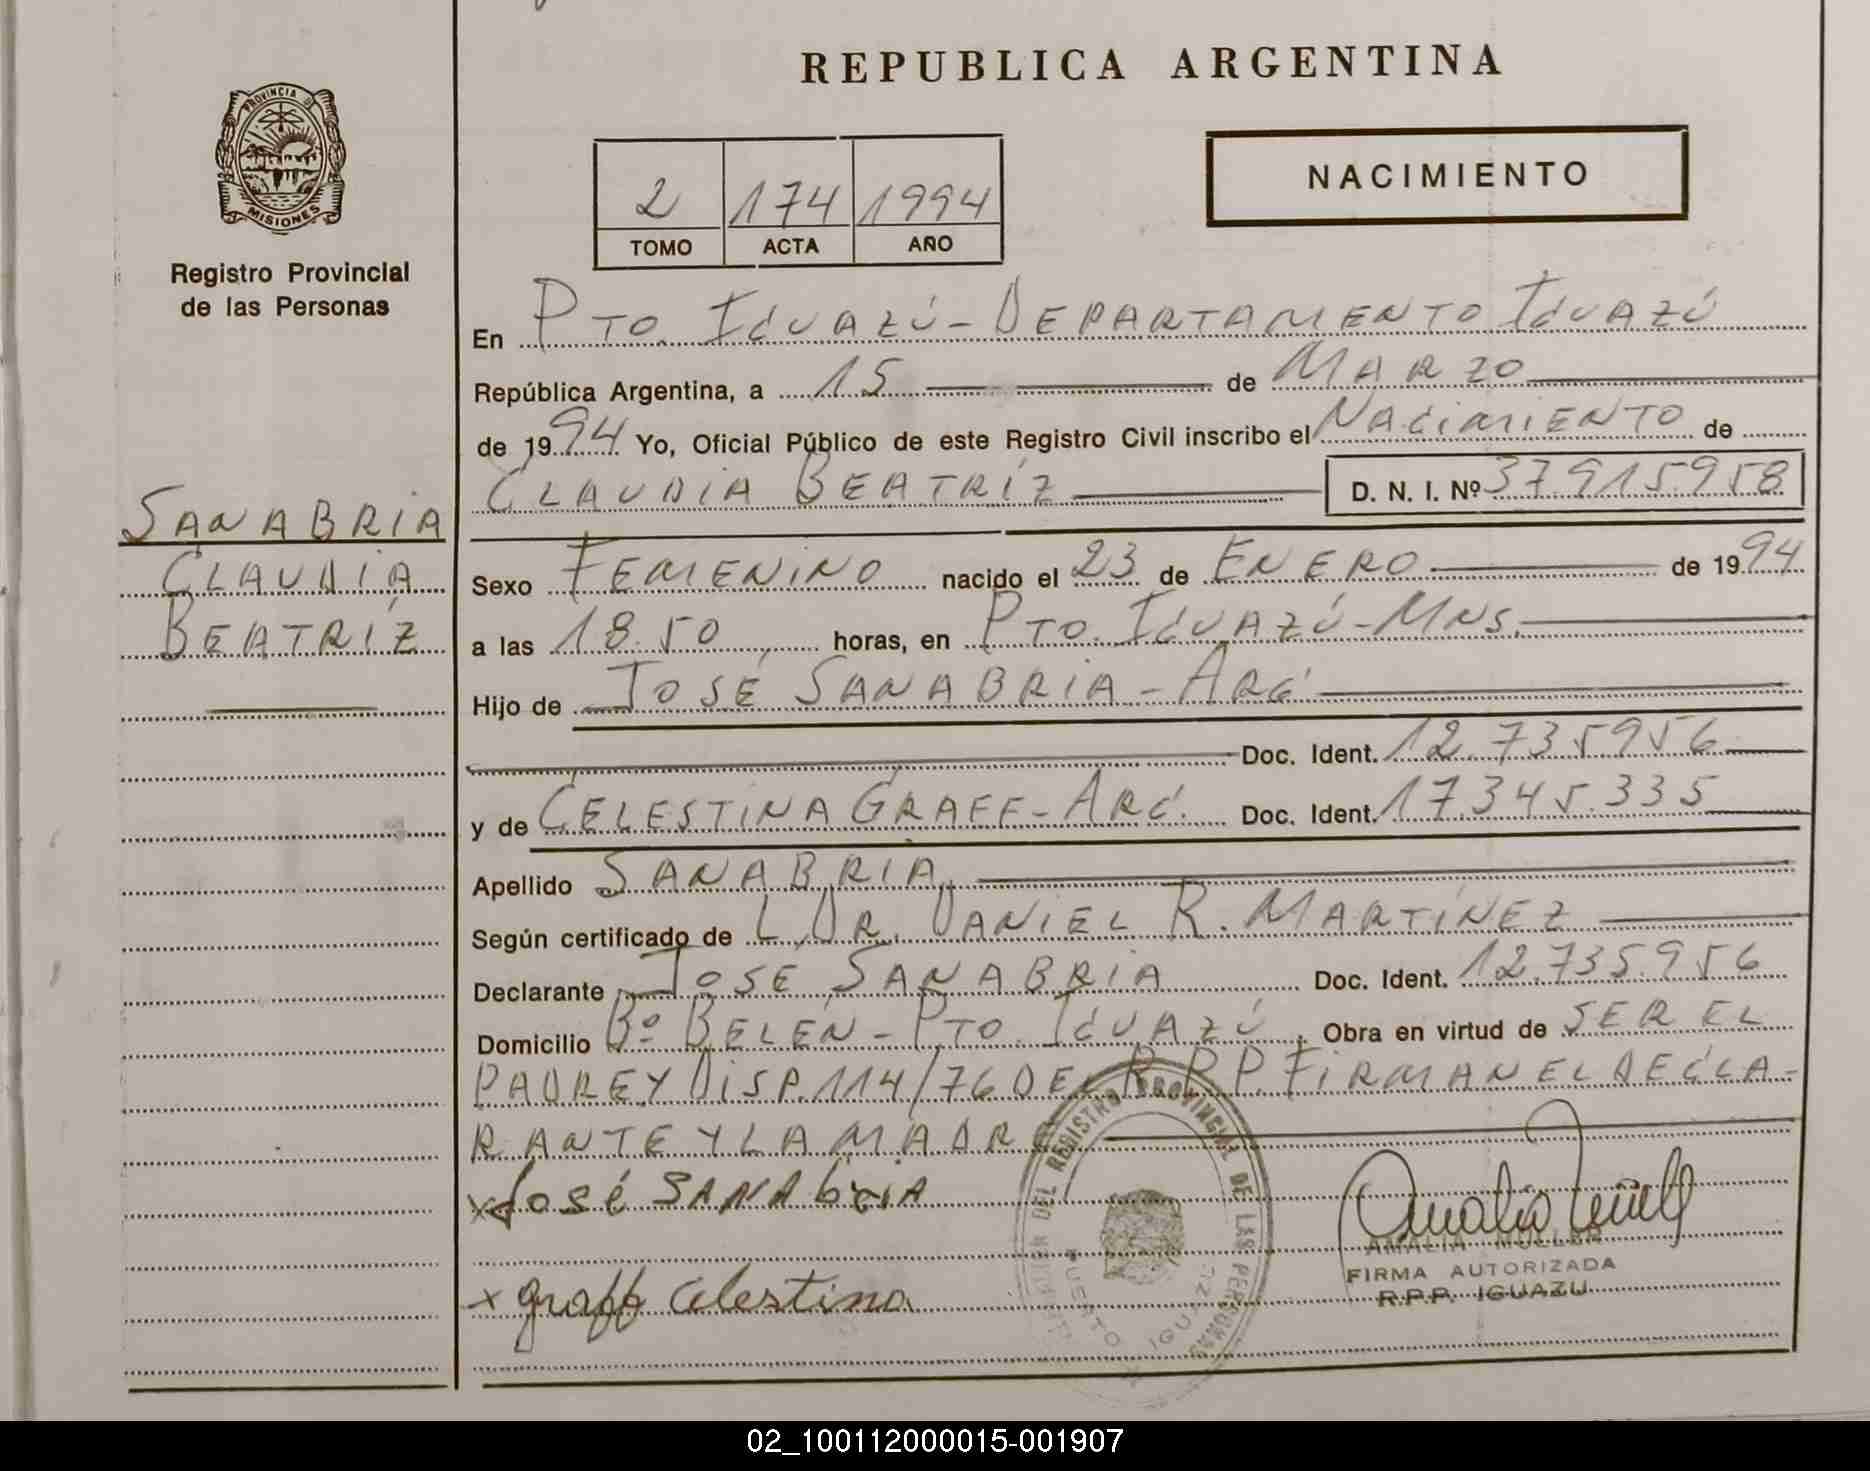 REPUBLICA ARGENTINA
PROVINCIA DE
MISIONES
Registro Provincial
de las Personas
2 174 1994
TOMO ACTA AÑO
NACIMIENTO
En PTO. IGUAZÚ - DEPARTAMENTO IGUAZÚ
República Argentina, a 15 de MARZO
de 1994 Yo, Oficial Público de este Registro Civil inscribo el NACIMIENTO de
CLAUDIA BEATRÍZ D. N. I. Nº 37.915.958
SANABRIA
CLAUDIA
BEATRÍZ
Sexo FEMENINO nacido el 23 de ENERO de 1994
a las 18.50 horas, en PTO. IGUAZÚ - MNS.
Hijo de JOSÉ SANABRIA - ARG.
Doc. Ident. 12.735956
y de CELESTINA GRAFF - ARG. Doc. Ident. 17.345.335
Apellido SANABRIA
Según certificado de L. DR. DANIEL R. MARTÍNEZ
Declarante JOSE SANABRIA Doc. Ident. 12.735.956
Domicilio Bº BELÉN - PTO. IGUAZÚ. Obra en virtud de SER EL
PADRE Y DISP. 114/76 DEL R.P.P. FIRMAN EL DECLA-
RANTE Y LA MADRE
x José SANAbriA
x graff Celestina
DEL REGISTRO PROVINCIAL DE LAS PERSONAS
PUERTO IGUAZU
Amalia Müller
AMALIA MULLER
FIRMA AUTORIZADA
R.P.P. IGUAZU
02_100112000015-001907